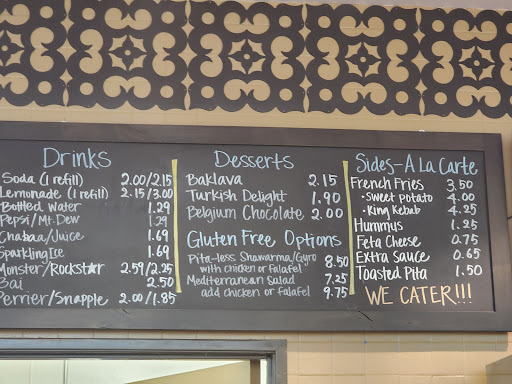 Drinks
Soda (1 refill) 2.00/2.15
Lemonade (1 refill) 2.15/3.00
Bottled Water 1.29
Pepsi/Mt. Dew 1.29
Chabaa/Juice 1.69
Sparkling Ice 1.69
Monster/Rockstar 2.59/2.25
Bai 2.50
Perrier/Snapple 2.00/1.85
Desserts
Baklava 2.15
Turkish Delight 1.90
Belgium Chocolate 2.00
Gluten Free Options
Pita-less Shawarma/Gyro
with chicken or falafel 8.50
Mediterranean Salad 7.25
add chicken or falafel 9.75
Sides-A La Carte
French Fries 3.50
• Sweet potato 4.00
• King Kebab 4.25
Hummus 1.25
Feta Cheese 0.75
Extra Sauce 0.65
Toasted Pita 1.50
WE CATER!!!